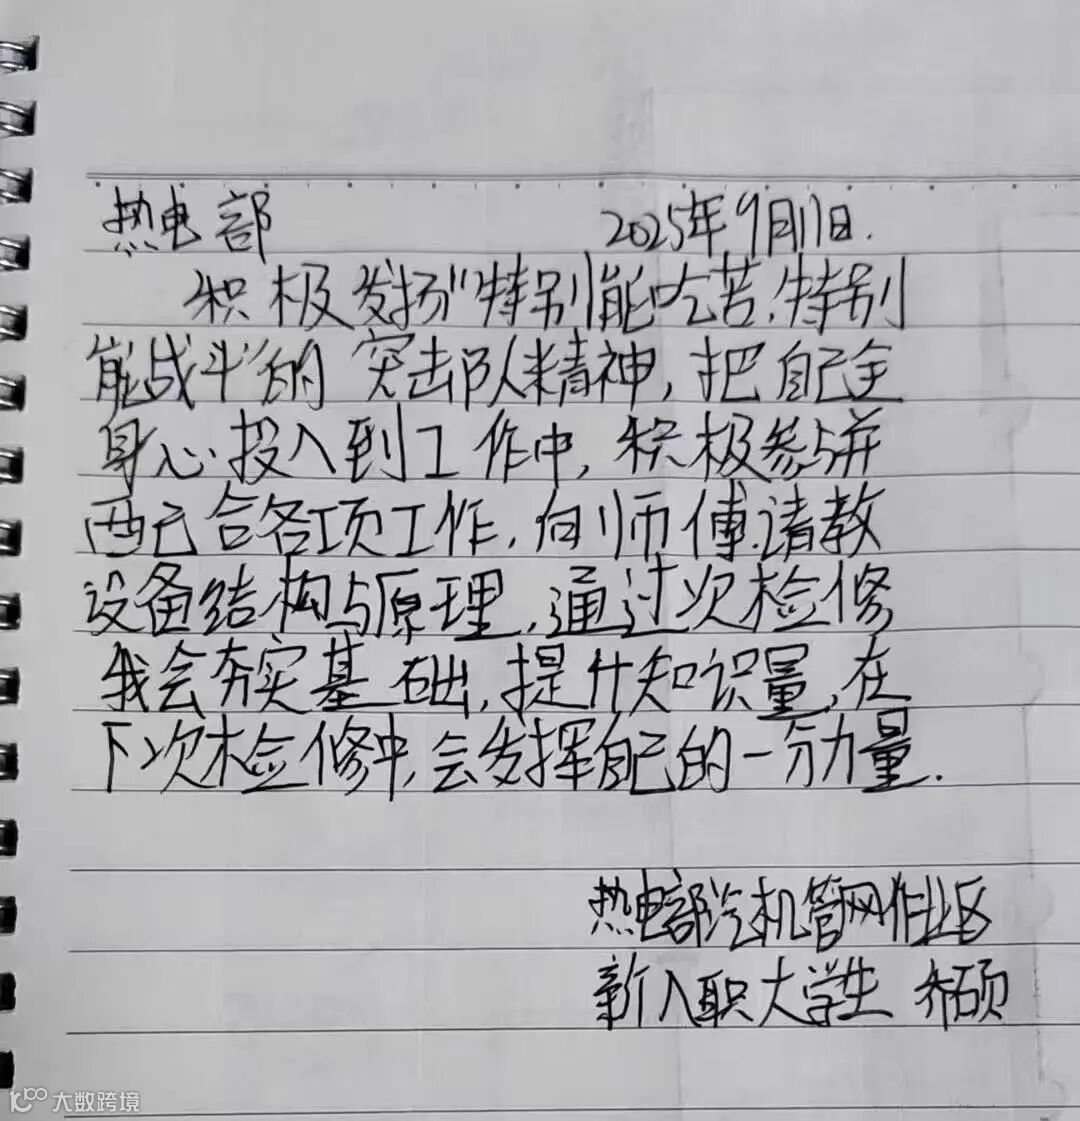 热电部 2025年9月11日.
积极发扬"特别能吃苦,特别
能战斗"的 突击队精神,把自己全
身心投入到工作中,积极参与并
配合各项工作,向师傅请教
设备结构与原理,通过次检修
我会夯实基础,提升知识量,在
下次检修中,会发挥自己的一份力量.
热电部汽机管网作业区
新入职大学生 乔硕
大数跨境